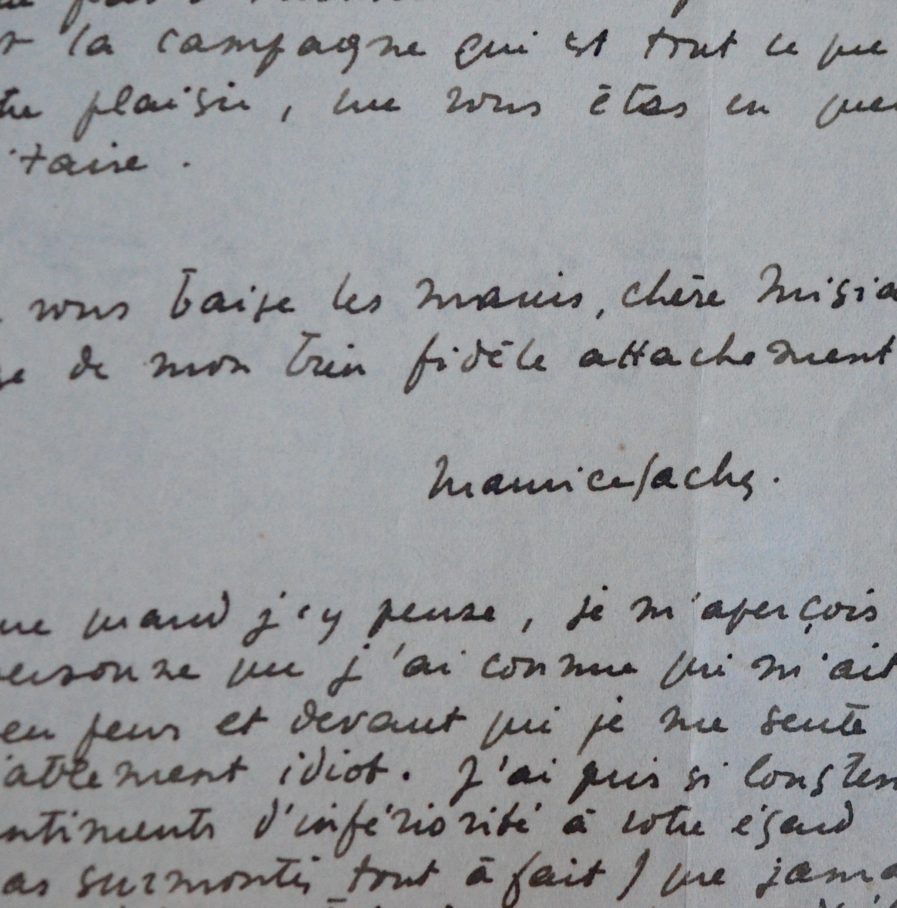 la campagne qui est tout ce que
plaisir, que vous êtes en
taire.
vous baise les mains, chère Misia
de mon bien fidèle attachement
Maurice Sachs.
que quand j'y pense, je m'aperçois
personne que j'ai connue qui m'ait
peur et devant qui je me sente
ablement idiot. J'ai puis si longtem
ntiments d'infériorité à votre égard
as surmontés tout à fait) que jama